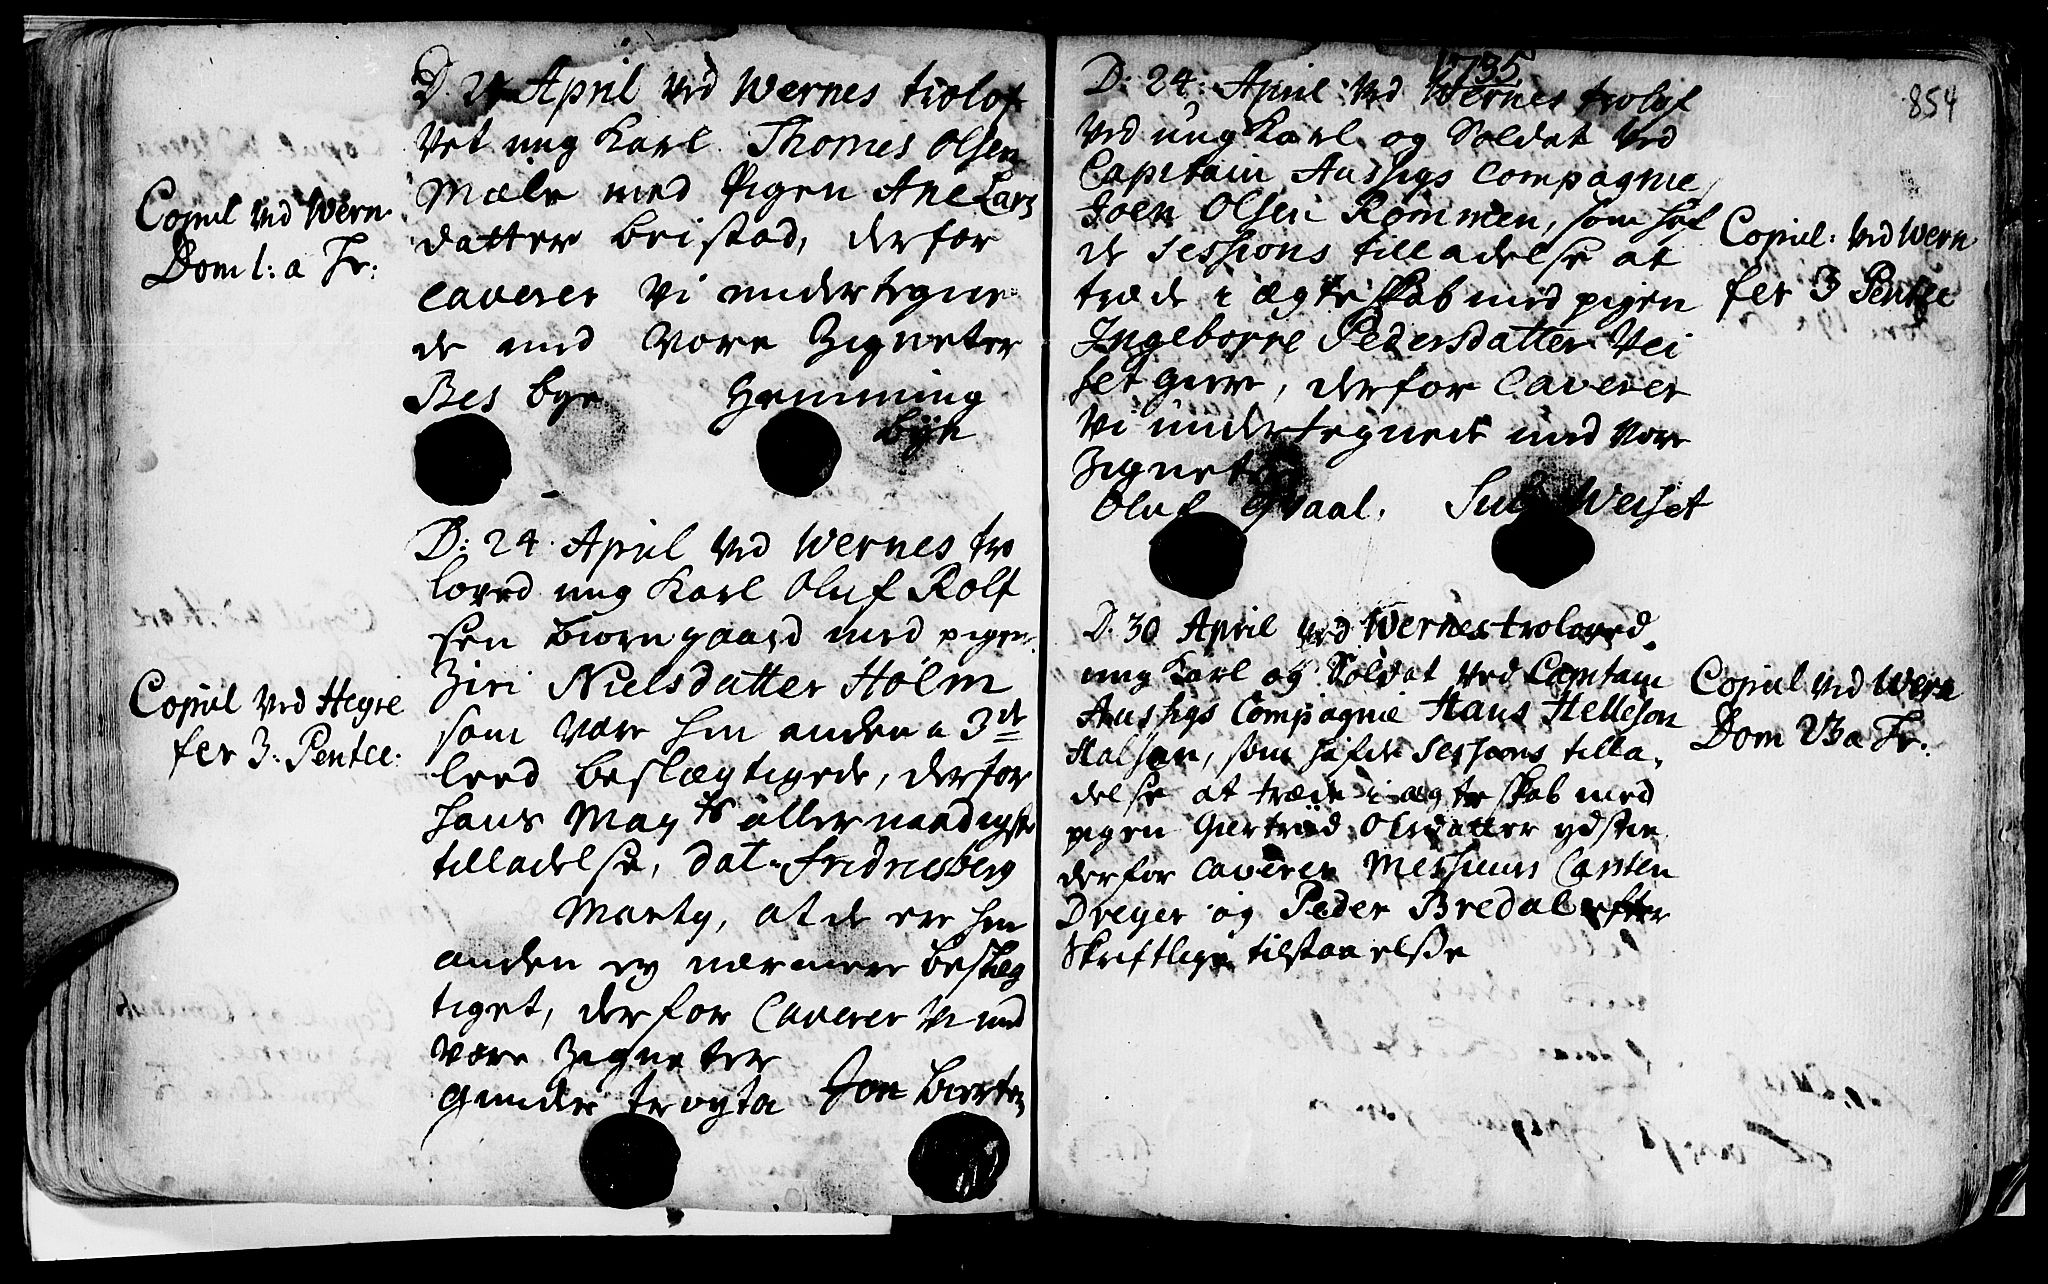 D. 24 April Ved Wernes trolof
Vet ung Karl Thomes Olsen
Mæle med Pigen Ane Lars
datter beistad, derfor
caverer Vi undertegne
de med Vore Zigneter
Bes bye Hemming
bÿe
Copul Ved Wern
Dom 1: a Tr:
D: 24 April Ved Wernes tro
loved ung Karl Oluf Rolf
sen biørngaard med pigen
Ziri Nielsdatter Holm
som Vare hin anden a 3de
leed beslægtigede, derfor
hans Mayts aller naadigste
tilladelse, dat. Fridricsberg
Marty, at de ere hin
anden ey nærmere beslæg
tiget, derfor Caverer Vi med
Vore Zigneter
Gunder Jon
Copul Ved Hegre
fer 3. Pentec:
1735
854
D: 24: April Ved Wernes trolof
Ved ung Karl og Soldat Ved
Capitain Compagnie
Joen Olsen Rømmen, som haf
de Sessions tilladelse at
træde i ægteskab med pigen
Ingeborre Pedersdatter Vei
set giere, derfor Caverer
Vi undertegnede med Vore
Zigneter
Oluf Qvaal. Weiset
Copul: Ved Wern
fer 3 Pentec
D. 30 April Ved Wernes troloved
ung Karl og Soldat Ved Capitain
Compagnie Hans Helleson
Halsen, som hafde Sessions tilla-
delse at træde i ægteskab med
pigen Giertrud Olsdatter ydstie
derfor caverer Messieurs Carsten
Dreyer og Peder Bredal efter
Skriftlige tilstaaelse
Copul Ved Wern
Dom 23 a Tr: